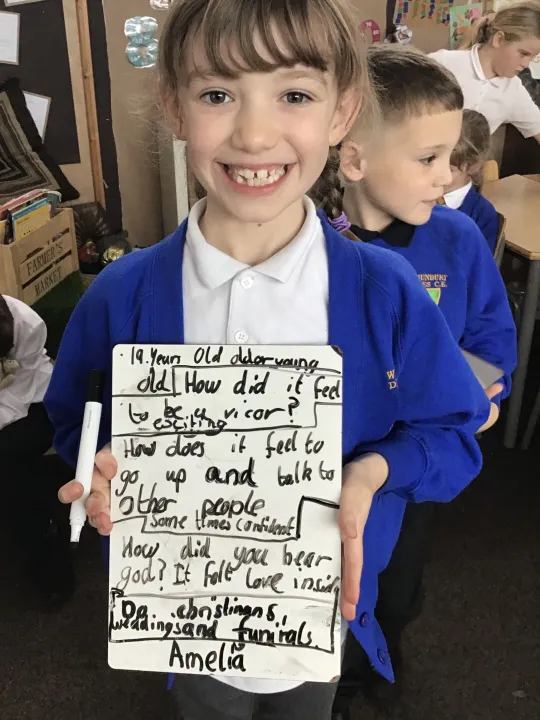 • 19 Years Old older young
old How did it feel
to be a vicor?
esciting
How does it feel to
go up and talk to
other people
Some times confident
How did you hear
god? It felt love insid
Do christinans,
weadings and funirals.
Amelia
FARMER'S
MARKET